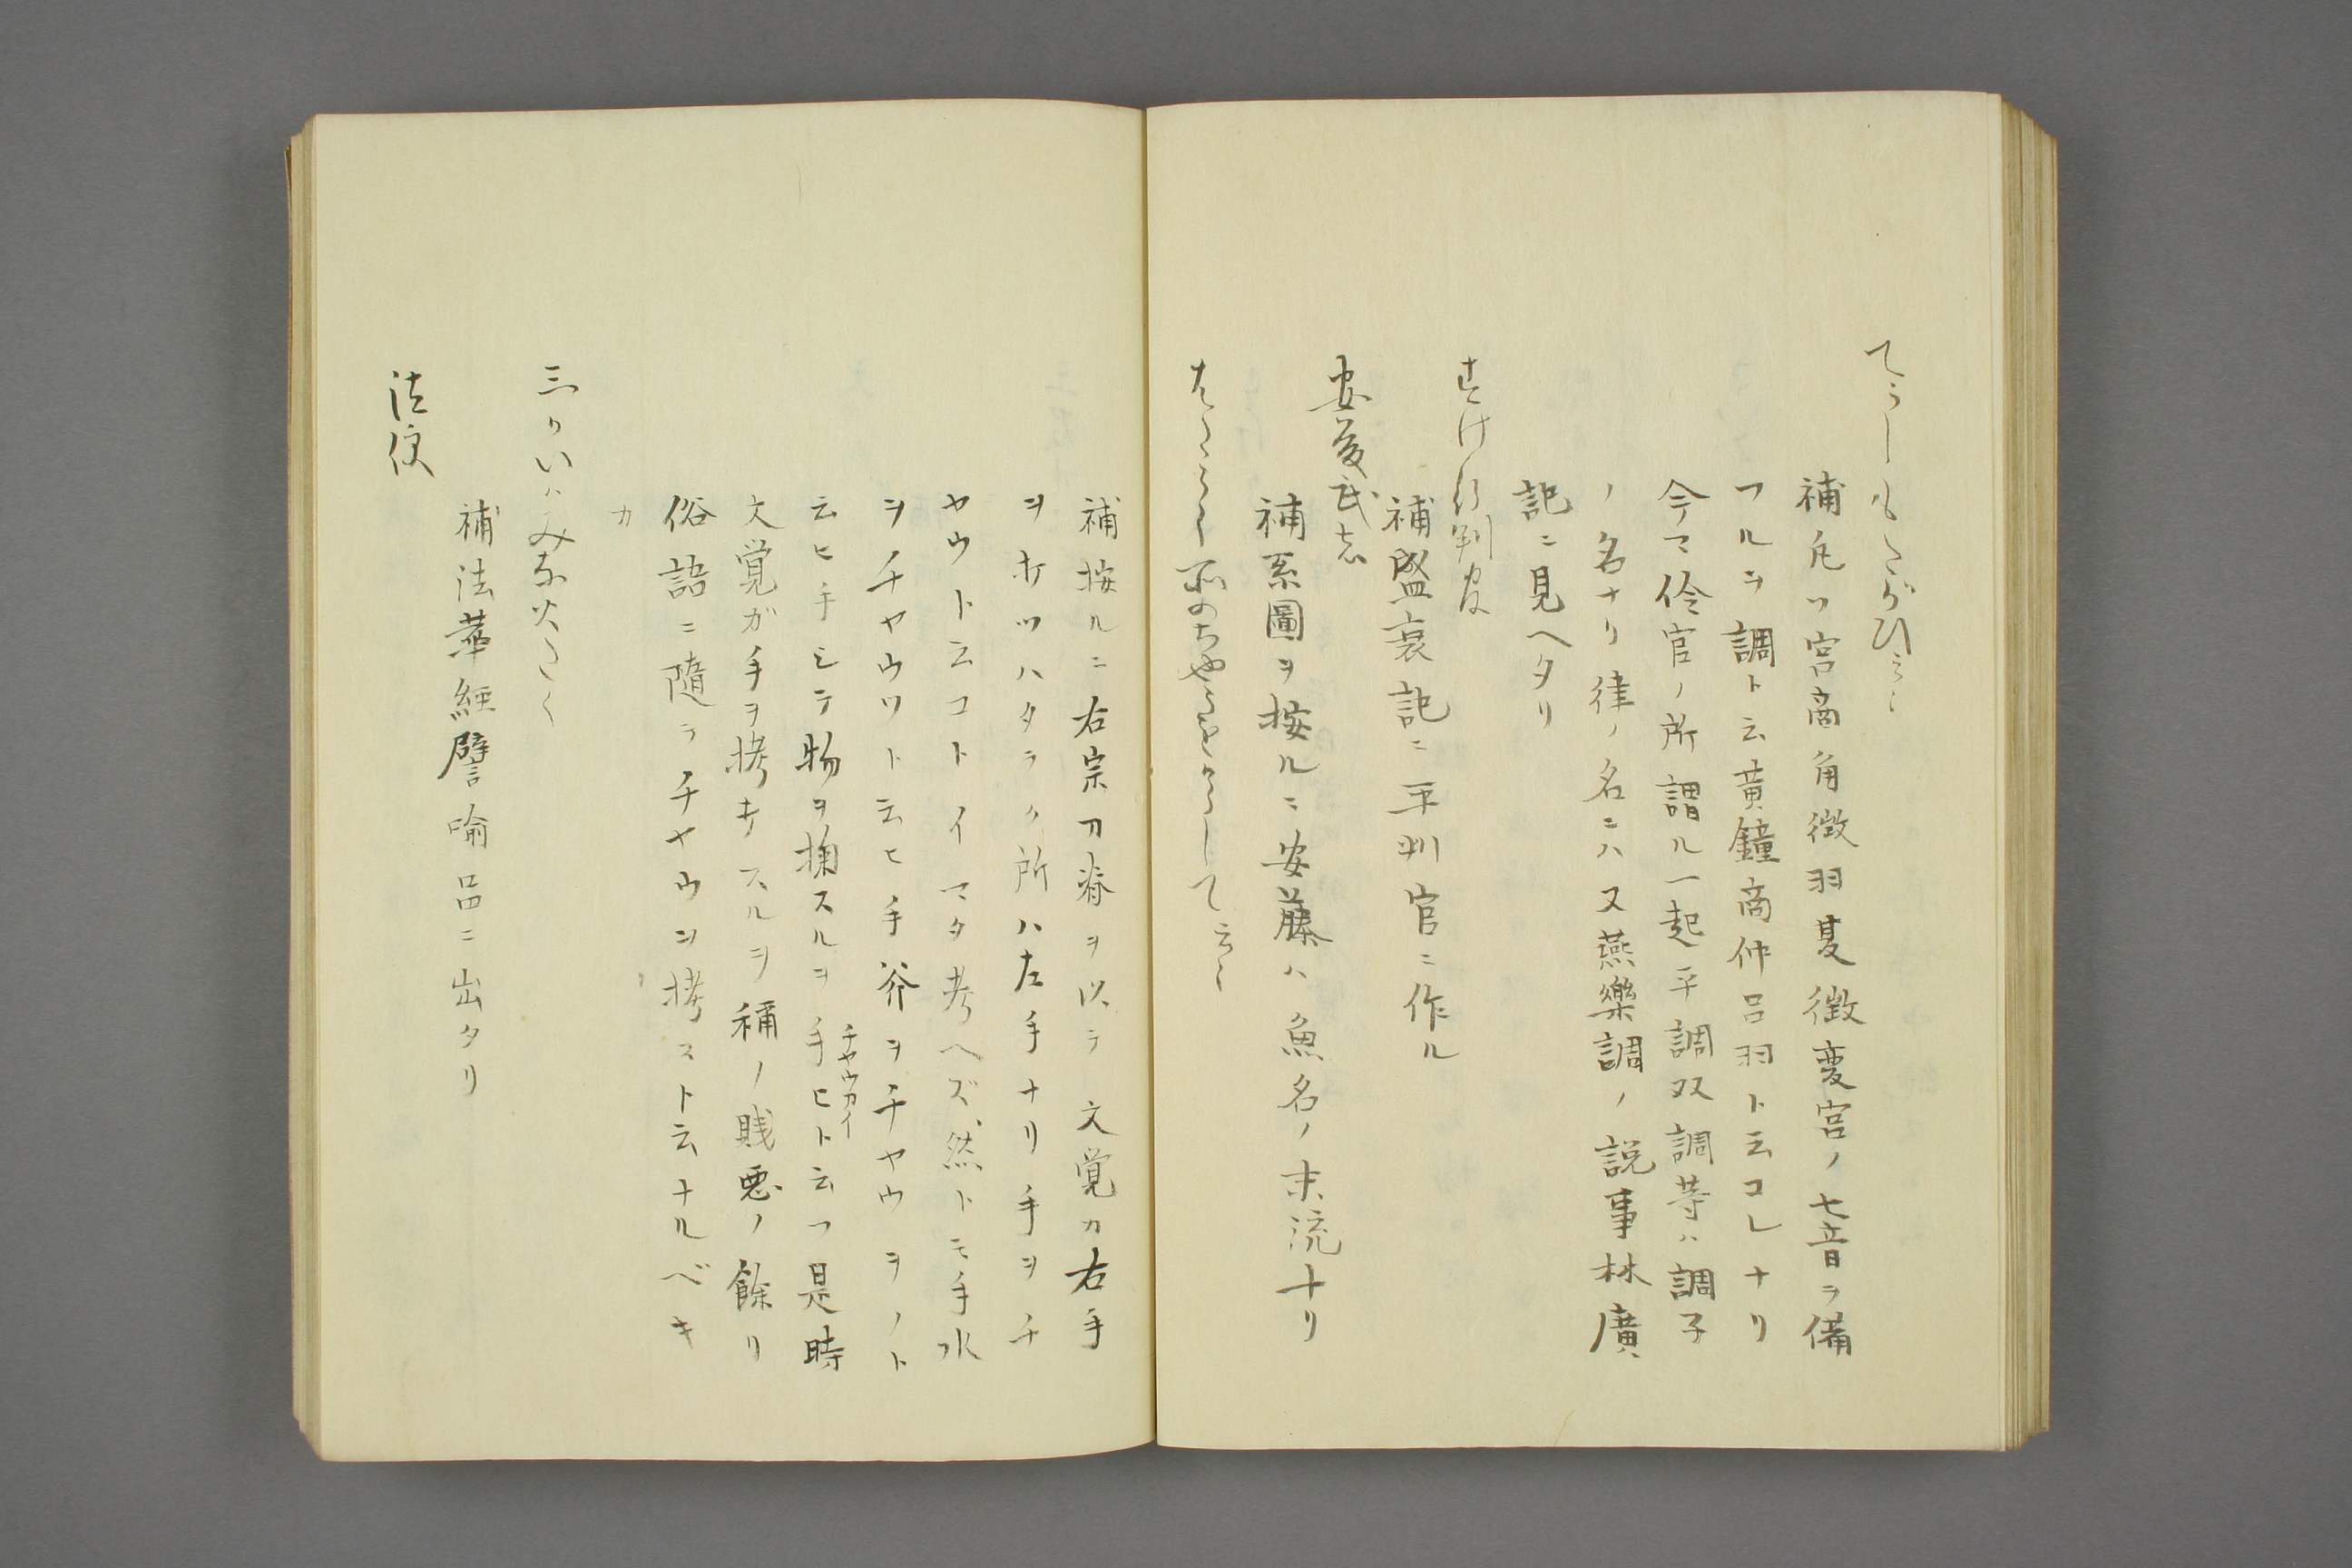 てうしもたがひ云々
補凡ソ宮商角徴羽変徴変宮ノ七音ヲ備
フルヲ調ト云黄鐘商仲呂羽ト云コレナリ
今マ伶官ノ所謂ル一起平調双調等ハ調子
ノ名ナリ律ノ名ニハ又燕樂調ノ説事林廣
記ニ見ヘタリ
すけ行判官
補盛衰記ニ平判官ニ作ル
安藤武者
補系圖ヲ按ルニ安藤ハ魚名ノ末流ナリ
はたらく所のちやうをかうして云々
補按ルニ右宗刀脊ヲ以テ文覚カ右手
ヲホツハタラク所ハ左手ナリ手ヲチ
ヤウト云コトイマタ考ヘズ然トモ手水
ヲチヤウツト云ヒ手斧ヲチヤウヲノト
云ヒ手シテ物ヲ掬スルヲ手ヒト云フ是時
チヤウカイ
文覚ガ手ヲ拷キスルヲ稱ノ賎悪ノ餘リ
俗語ニ隨テチヤウヲ拷スト云ナルベキ
カ
三かいハみな火たく
補法華經譬喻品ニ出タリ
法便